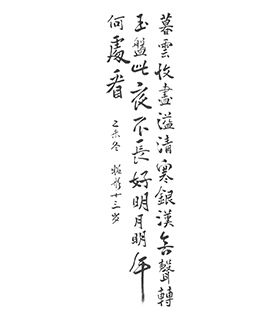 暮雲收盡溢清寒銀漢無聲轉
玉盤此夜不長好明月明年
何處看 乙未冬 十三岁